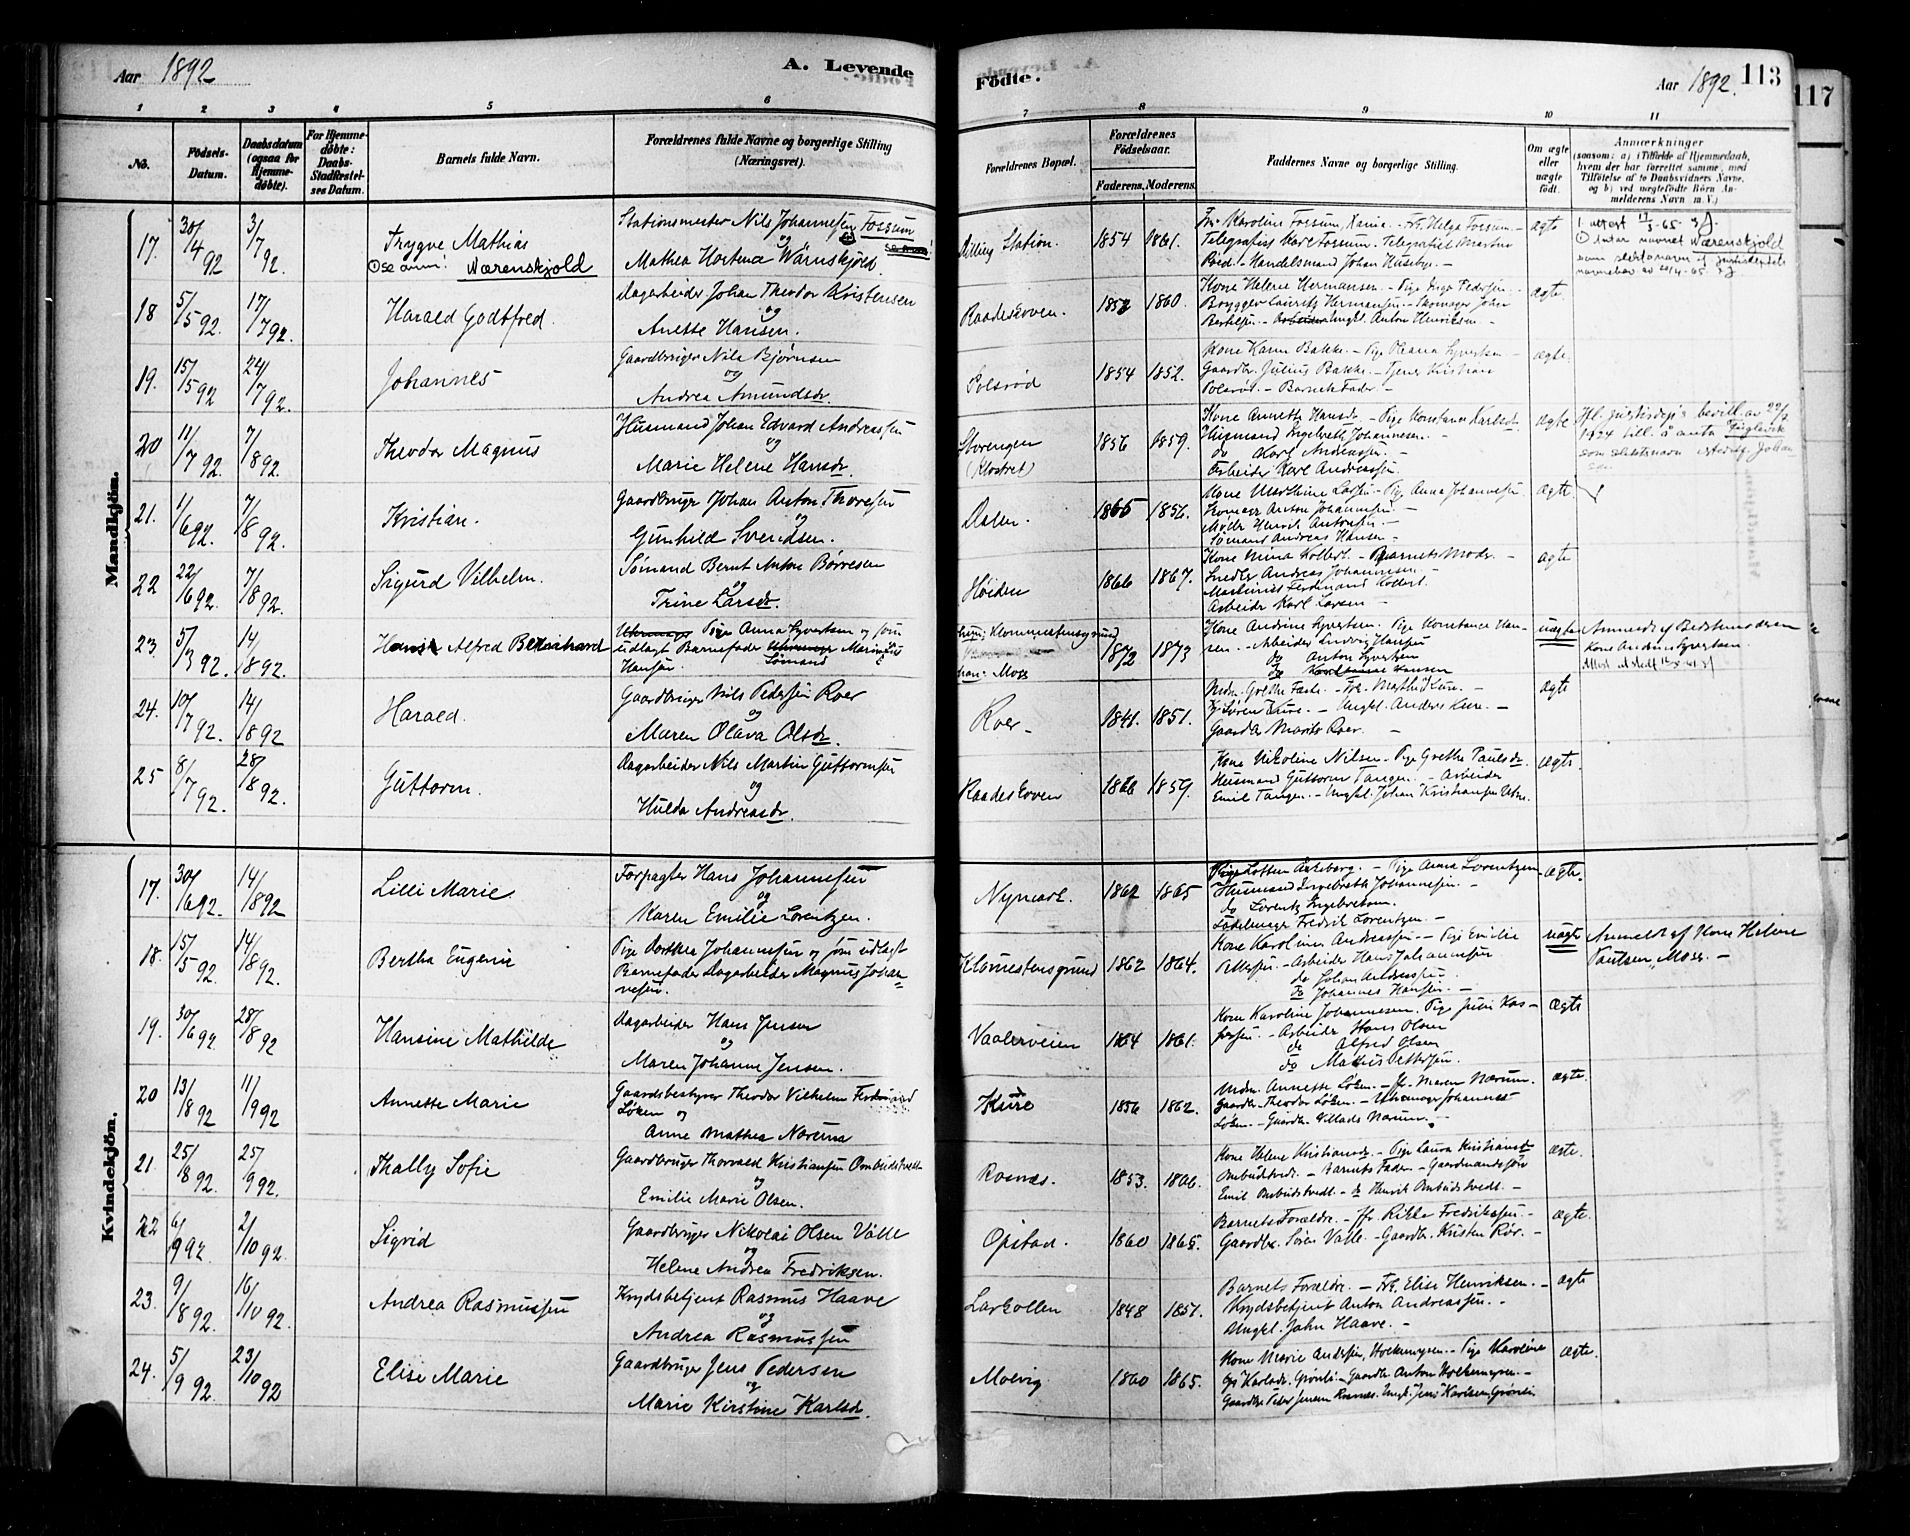 Aar 1892
A. Levende
1 2 3 4 5 6
No.
Födsels-Datum.
Daabsdatum (ogsaa for Hjemmedöbte).
For Hjemmedöbte: Daabs-Stadfæstelses Datum.
Barnets fulde Navn.
Forældrenes fulde Navne og borgerlige Stilling (Næringsvei).
Mandkjön.
17. 30/4 92 3/7 92. Trygve Mathias Stationsmester Nils Johannesen Fossum
se anm! Nærenskjold og
Mathea Hortense Wärnskjold.
18 5/5 92. 17/7 92. Harald Godtfred. Dagarbeider Johan Theodor Kristensen
og
Anette Hansen.
19. 15/5 92 24/7 92. Johannes Gaardbruger Nils Bjørnsen
og
Andrea Amundsdr.
20 11/7 92. 7/8 92. Theodor Magnus Husmand Johan Edvard Andreassen
og
Marie Helene Hansdr.
21. 1/6 92. 7/8 92. Kristian. Gaardbruger Johan Anton Thoresen
og
Gunhild Svendsen.
22 22/6 92. 7/8 92. Sigurd Vilhelm. Sømand Bernt Anton Børresen
og
Trine Larsdr.
23. 5/3 92. 14/8 92. Alfred Bernhard Pige Anna Syvertsen og som
udlagt Barnefader
Hansen. Sømand
24. 10/7 92. 14/8 92 Harald. Gaardbruger Nils Pedersen Roer
og
Maren Olava Olsdr.
25 8/7 92. 28/8 92. Guttorm. Dagarbeider Nils Martin Guttormsen
og
Hulda Andreasdr.
Kvindekjön.
17. 30/6 92. 14/8 92 Lilli Marie Forpagter Hans Johannesen
og
Karen Emilie Lorentzen.
18. 15/5 92. 14/8 92. Bertha Eugenie Pige Dorthea Johannesen og som udlagt
Barnefader Dagarbeider Magnus Johannesen.
19. 30/6 92. 28/8 92 Hansine Mathilde Dagarbeider Hans Jensen
og
Maren Johanne Jensen.
20 13/8 92 11/9 92 Annette Marie Gaardsbestyrer Theodor Vilhelm Ferdinand
Løken og
Anne Mathea Narum
21. 25/8 92. 25/9 92. Thally Sofie Gaardbruger Thorvald Kristiansen Ombudstvedt
og
Emilie Marie Olsen.
22 6/9 92 2/10 92. Sigrid Gaardbruger Nikolai Olsen Välle
og
Helene Andrea Fredriksen.
23. 9/8 92. 16/10 92. Andrea Rasmussen Krydsbetjent Rasmus Haave
og
Andrea Rasmussen
24. 5/9 92. 23/10 92 Elise Marie Gaardbruger Jens Pedersen
og
Marie Kirstine Karlsdr.
Födte.
Aar 1892.
113
117
7 8 9 10 11
Forældrenes Bopæl.
Forældrenes Födselsaar.
Faderens. Moderens.
Faddernes Navne og borgerlige Stilling.
Om ægte eller uægte födt.
Anmærkninger
(saasom: a) i Tilfælde af Hjemmedaab,
hvem der har forrettet samme, med
Tilföielse af to Daabsvidners Navne,
og b) ved uægtefödte Börn Anmelderens Navn m. V.)
Dilling Station. 1854 1861. Fru Karoline Fossum, Xania. - Frk. Helga Fossum. - ægte
Telegrafist Kare Fossum. Telegrafist Martin
Handelsmand Johan Huseby. -
antar navnet Nærenskjold
Raadeskoven. 1852 1860. Kone Helene Hermansen. - Pige Inga Pedersen - ægte.
Brygger Laurits Hermansen. - Skomager Johan
Bertelsen. - Ungkl. Anton Henriksen -
Solsrød 1854 1852. Kone Karen Bakke. - Pige Oleana Syvertsen - ægte.
Gaardbr. Julius Bakke. - Tjener Kristian
Solsrød. - Barnets Fader. -
Støvengen (Klostret) 1856 1859. Kone Annette Hansdr. - Pige Konstance Karlsdr. ægte
Husmand Ingebreth Johannesen. -
do Karl Andreassen. -
Arbeider Karl Andreassen
som slektsnavn
Dalen. 1865 1856. Kone Marthine Larsen - Pige Anna Johannesen ægte
Skomager Anton Johannesen. -
Henrik Antonsen. -
Sømand Andreas Hansen -
Høiden 1866 1867. Kone Mina Kolberd. - Barnets Moder. - ægte
Snedker Andreas Johannesen. -
Ferdinand Kolberd.
Arbeider Karl Larsen -
Moss 1872 1873 Kone Andrine Syvertsen. Pige Konstance Hansen. uægte
- Arbeider Ludvig Hansen
do Anton Syvertsen
Anmeldt af Bedstemoderen
Kone Andrine Syvertsen.
Roer. 1841. 1851. Mdm. Grethe Faste. - Frk. Marthe Kure. - ægte
Søren Kure. - Ungkl. Anders Kure. -
Gaardbr. Roer. -
Raadeskoven 1866 1859. Kone Nikoline Nilsen. - Pige Grethe Paulsdr. ægte.
Husmand Guttorm Tangen. - Arbeider
Emil Tangen. - Ungkl. Johan Kristiansen
1862 1865 Pige Anna Lorentzen ægte.
Husmand Ingebreth Johannesen. -
do Lorentz Ingebretsen.
Fredrik Lorentzen. -
Klommestensgrund 1862 1864. Kone Karoline Andreassen. - Pige Emilie uægte
Pettersen. - Arbeider Hans Johannesen
do Johan Andreassen
do Johannes Hansen. -
Anmeldt af Kone Helene
Paulsen, Moss. -
Vaalerveien 1864 1861. Kone Karoline Johannesen. Pige Julie Kaspersen. ægte
- Arbeider Hans Olsen
do Alfred Olsen
do Pettersen.
Kure 1856 1862. Mdm. Annette Løken. - Fr. Maren Narum. ægte.
Gaardbr. Theodor Løken. - Urmager Johannes
Løken. - Gaardbr. Narum.
Rosnæs. 1853. 1866. Kone Helene Kristiansdr. - Pige Laura Kristiansdr ægte.
Ombudstvedt. - Barnets Fader. - Gaardmandssøn
Emil Ombudstvedt. - do Henrik Ombudstvedt. -
Opstad. 1860 1865. Barnets Forældre. - Fr. Rikka Fredriksen. - ægte.
Gaardbr. Søren Valle. - Gaardbr. Kristen Rör. -
Larkollen 1848 1857. Barnets Forældre. - Frk. Elise Henriksen. - ægte
Krydsbetjent Anton Andreassen. -
Ungkl. John Haave. -
Molvig 1860 1865. Kone Marie Andersen, - Pige Karoline ægte.
Karlsdr. Grønli - Gaardbr. Anton
Gaardbr. Peder Jensen Rosnæs. Ungk. Jens Karlsen, Grønli